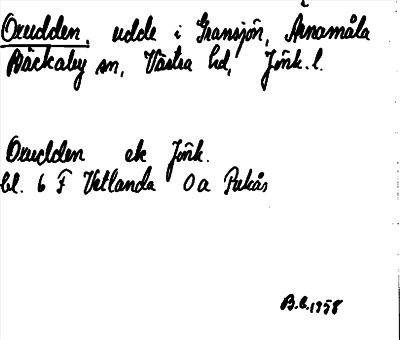 Oxudden, udde i Gransjön, Årnamåla
Bäckaby sn, Västra hd, Jönk. l.
Oxudden ek Jönk.
bl. 6 F Vetlanda 0a Pukås
B.E. 1958